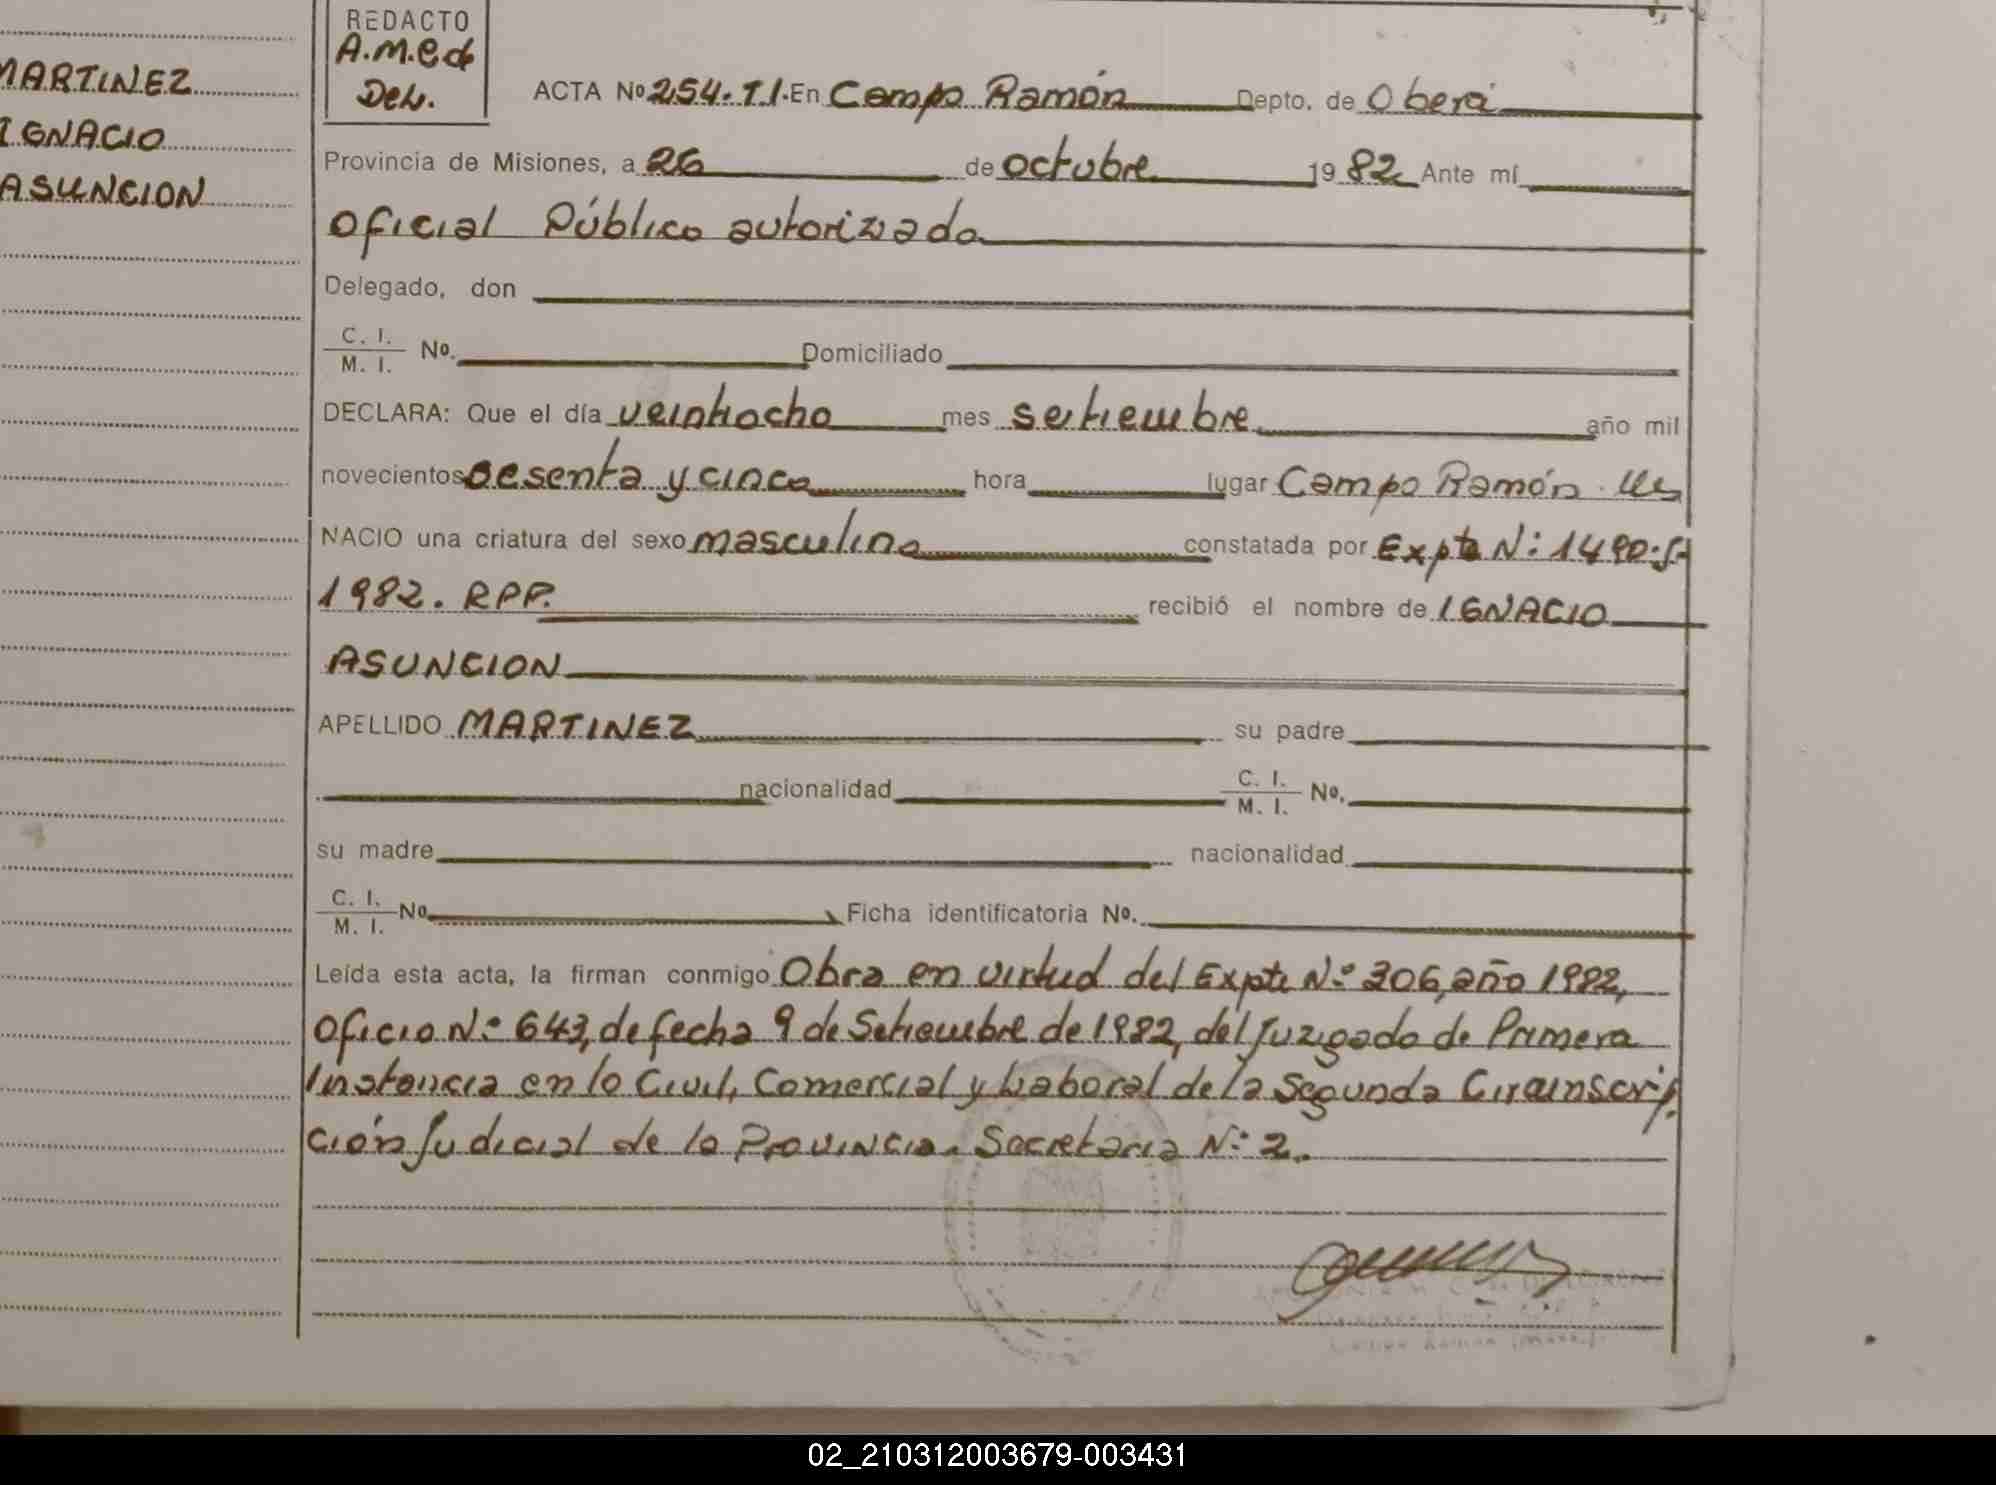 MARTINEZ
IGNACIO
ASUNCION
REDACTO
A.M.C de
Del.
ACTA Nº 254. TI. En Campo Ramón Depto. de Oberá
Provincia de Misiones, a 26 de octubre 1982 Ante mí
Oficial Público autorizado
Delegado, don
C. I.
M. I. Nº. Domiciliado
DECLARA: Que el día veintiocho mes setiembre año mil
novecientos sesenta y cinco hora lugar Campo Ramón
NACIO una criatura del sexo masculino constatada por Expte Nº: 1490-S-
1982. RPP. recibió el nombre de IGNACIO
ASUNCION
APELLIDO MARTINEZ su padre
nacionalidad C. I.
M. I. Nº.
su madre nacionalidad
C. I.
M. I. Nº Ficha identificatoria Nº.
Leída esta acta, la firman conmigo Obra en virtud del Expte Nº: 306, año 1982,
Oficio Nº: 643, de fecha 9 de Setiembre de 1982, del Juzgado de Primera
Instancia en lo Civil, Comercial y Laboral de la Segunda Circunscrip
ción Judicial de la Provincia. Secretaria Nº: 2.
02_210312003679-003431